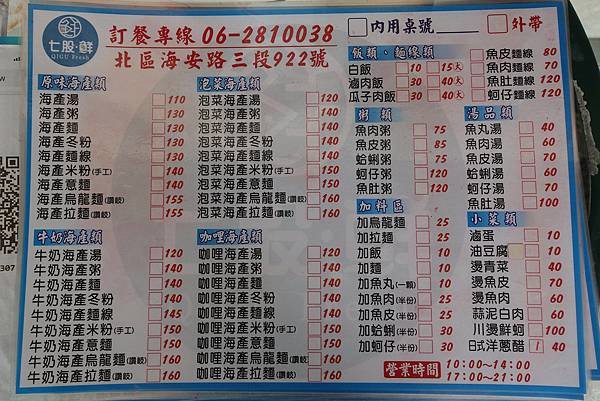 七股·鮮
QIGU Fresh
訂餐專線 06-2810038
北區海安路三段922號
內用桌號
外帶
原味海產類
海產湯 110
海產粥 130
海產麵 130
海產冬粉 130
海產麵線 130
海產米粉(手工) 140
海產意麵 140
海產烏龍麵(讚岐) 155
海產拉麵(讚岐) 155
泡菜海產類
泡菜海產湯 120
泡菜海產粥 140
泡菜海產麵 140
泡菜海產冬粉 140
泡菜海產麵線 140
泡菜海產米粉(手工) 150
泡菜海產意麵 150
泡菜海產烏龍麵(讚岐) 160
泡菜海產拉麵(讚岐) 160
牛奶海產類
牛奶海產湯 120
牛奶海產粥 140
牛奶海產麵 140
牛奶海產冬粉 140
牛奶海產麵線 145
牛奶海產米粉(手工) 150
牛奶海產意麵 150
牛奶海產烏龍麵(讚岐) 160
牛奶海產拉麵(讚岐) 160
咖哩海產類
咖哩海產湯 120
咖哩海產粥 140
咖哩海產麵 140
咖哩海產冬粉 140
咖哩海產麵線 140
咖哩海產米粉(手工) 150
咖哩海產意麵 150
咖哩海產烏龍麵(讚岐) 160
咖哩海產拉麵(讚岐) 160
飯類、麵線類
白飯 10 15大
滷肉飯 30 40大
瓜子肉飯 30 40大
魚皮麵線 80
魚肉麵線 70
魚肚麵線 120
蚵仔麵線 90
粥類
魚肉粥 75
魚皮粥 85
蛤蜊粥 75
蚵仔粥 120
魚肚粥 120
湯品類
魚丸湯 40
魚肉湯 60
魚皮湯 70
蛤蜊湯 60
蚵仔湯 70
魚肚湯 100
加料區
加烏龍麵 25
加拉麵 25
加飯 10
加麵 10
加魚丸(一顆) 10
加魚肉(半份) 25
加魚皮(半份) 25
加蛤蜊(半份) 30
加蚵仔(半份) 30
小菜類
滷蛋 10
油豆腐 10
燙青菜 40
燙魚皮 70
燙魚肉 60
蒜泥白肉 60
川燙鮮蚵 100
日式洋蔥醋 1 40
營業時間 10:00~14:00
17:00~21:00
307